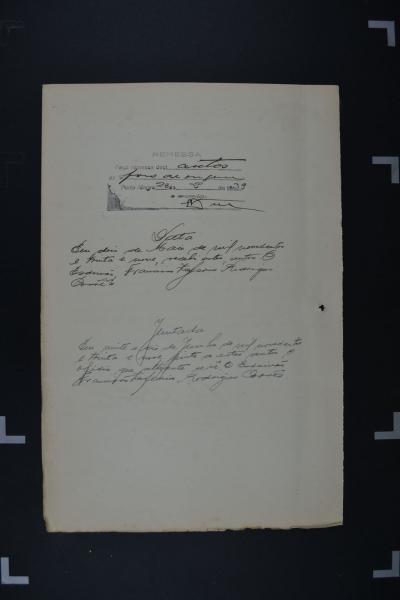 REMESSA
Faço remessa dest autos
ao foro de origem
Porto Alegre, de 19 39
O escrivão
Data
Em dois de Maio de mil novecentos
e trinta e nove, recebi estes autos O
Escrivão, Francisco Rodrigues
Juntada
Em vinte e de Junho de mil novecentos
e trinta e nove junto a estes autos o
officio que adeante se vê O Escrivão
Francisco Rodrigues